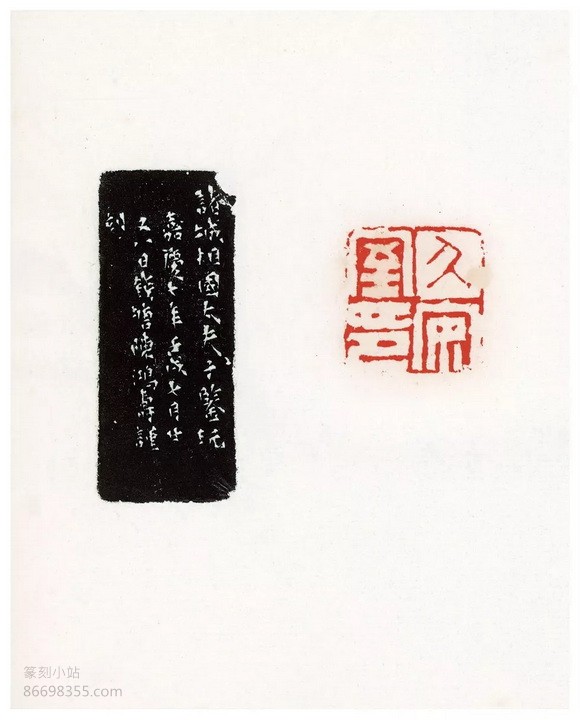 諸城相國太夫子鑒玩
嘉慶七年壬戌七月廿
八日錢唐陳鴻壽謹
刻
久安室
篆刻小站
86698355.com